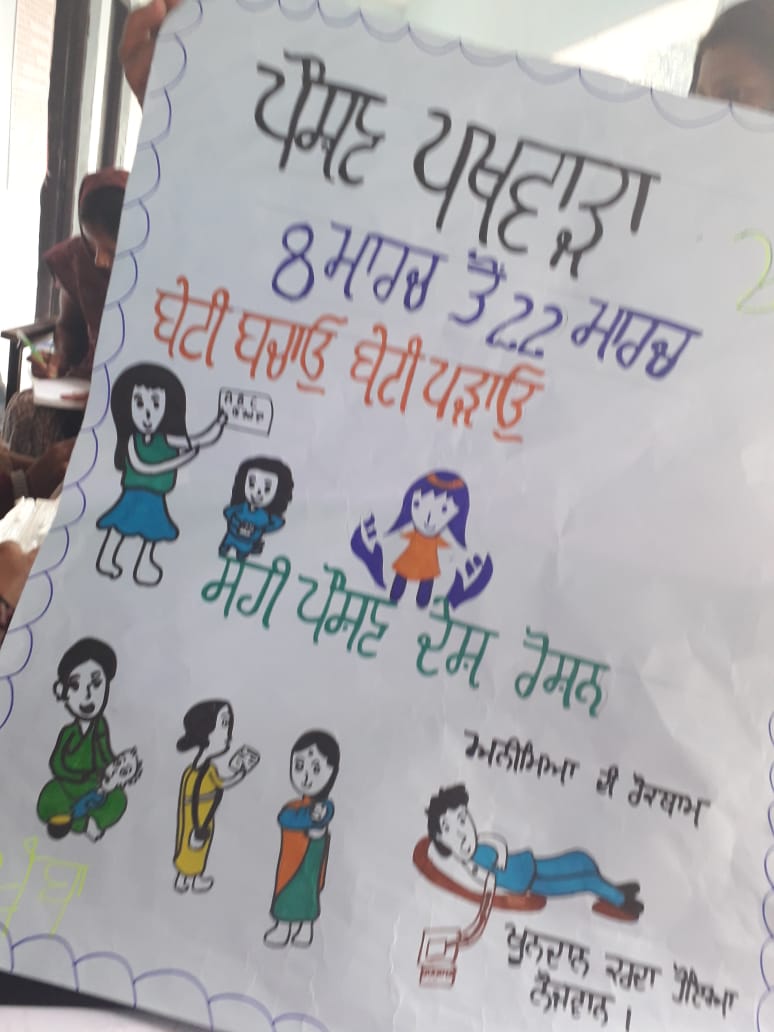 ਪੌਸ਼ਣ ਪਖਵਾੜਾ
8 ਮਾਰਚ ਤੋਂ 22 ਮਾਰਚ
ਬੇਟੀ ਬਚਾਉ ਬੇਟੀ ਪੜਾਉ
A B C
ਸਹੀ ਪੌਸ਼ਣ ਦੇਸ਼ ਰੋਸ਼ਨ
ਅਨੀਮਿਆ ਦੀ ਰੋਕਥਾਮ
ਖੂਨਦਾਨ ਕਰਦਾ ਹੋਇਆ
ਨੌਜਵਾਨ ।